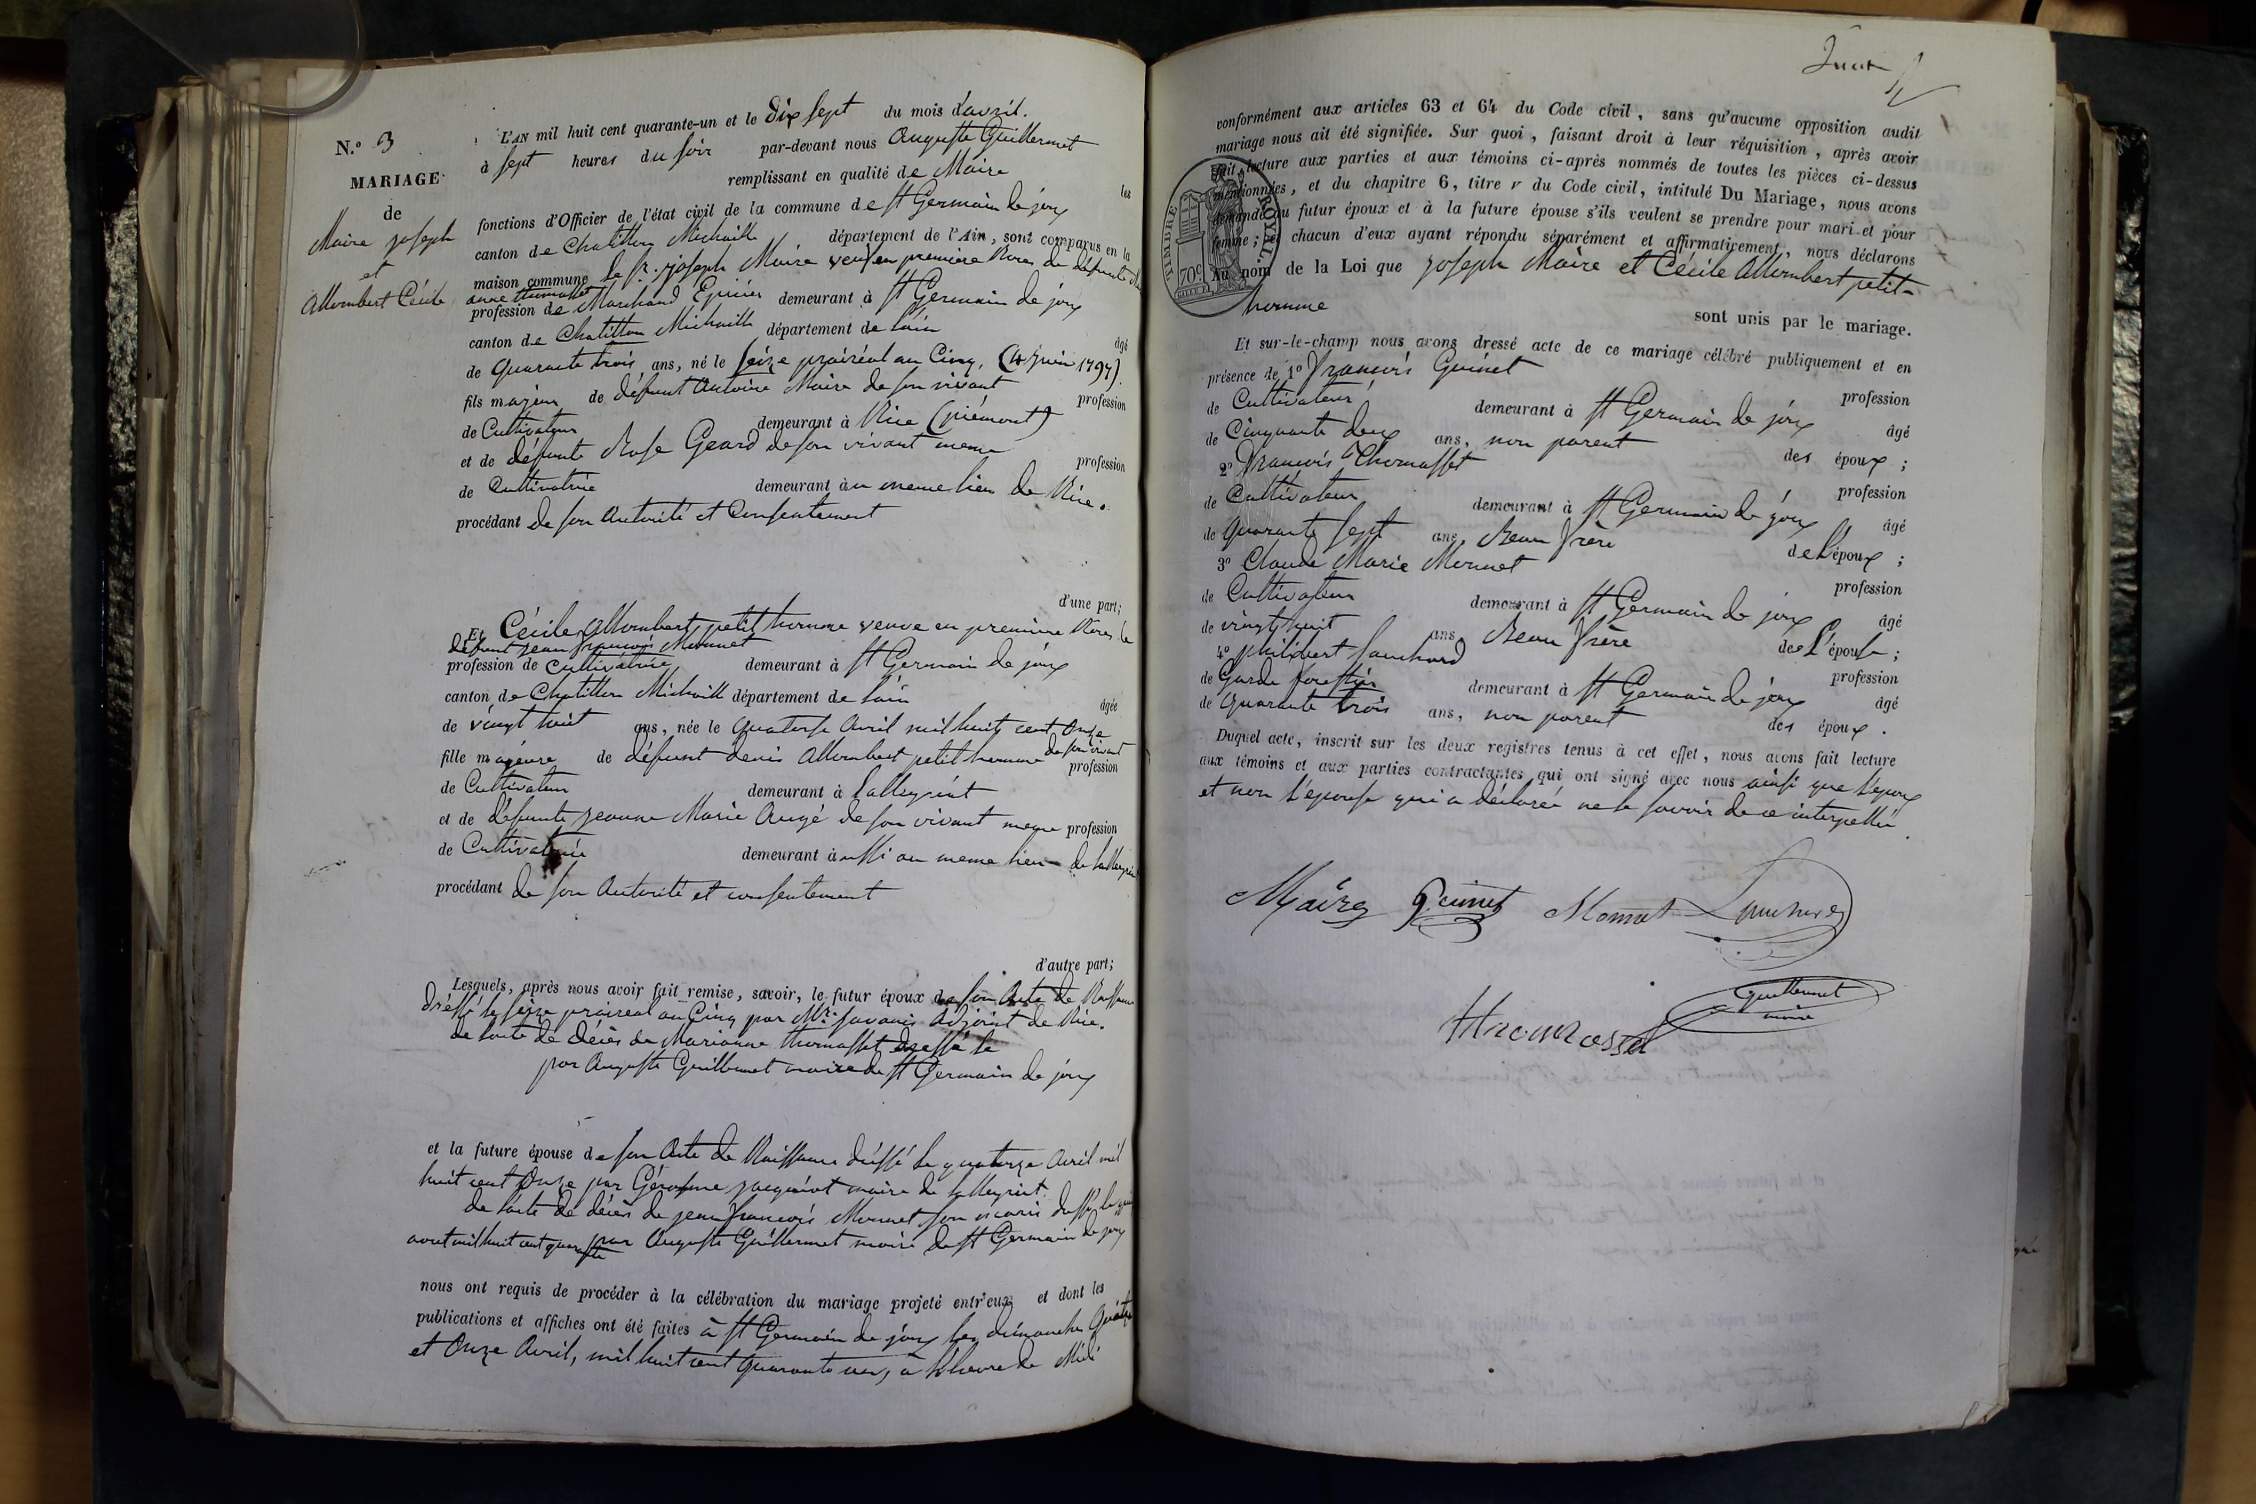 N.º 3
MARIAGE
de
Maire joseph
et
Allombert Cécile
L'AN mil huit cent quarante-un et le dix sept du mois d'avril.
à sept heures du soir par-devant nous Auguste Guillermet
remplissant en qualité de Maire les
fonctions d'Officier de l'état civil de la commune de st Germain de joux
canton de Chatillon Michaille département de l'Ain, sont comparus en la
maison commune le sr. joseph Maire veuf en premiere Noces de défunte
anne thomasset
profession de Marchand Epicier demeurant à st Germain de joux
canton de Chatillon Michaille département de lain âgé
de quarante trois ans, né le seize prairéal an Cinq, (4 juin 1797).
fils majeur de défunt Antoine Maire de son vivant profession
de Cultivateur demeurant à Nice (piémont)
et de défunte Rose Geard de son vivant meme profession
de Cultivatrice demeurant au meme lieu de Nice.
procédant de son autorité et Consentement
d'une part;
Et Cécile Allombert petit homme veuve en premiere Noces de
défunt jean françois Monnet
profession de cultivatrice demeurant à st Germain de joux
canton de Chatillon Michaille département de lain âgée
de vingt huit ans, née le quatorse avril mil huit cent onze
fille majeure de défunt denis Allombert petit homme de son vivant profession
de Cultivateur demeurant à Lalleyriat
et de défunte jeanne Marie Augé de son vivant meme profession
de Cultivatrice demeurant aussi au meme lieu de Lalleyriat
procédant de son autorité et consentement
d'autre part;
Lesquels, après nous avoir fait remise, savoir, le futur époux de son Acte de Naissance
dréssé le seize prairéal an Cinq par Mr. adjoint de Nice.
de l'acte de décès de Marianne thomasset dressé le
par Auguste Guillermet maire de st Germain de joux
et la future épouse de son Acte de Naissance dréssé le quatorze Avril mil
huit cent Onze par Gérosme jacquiot maire de lalleyriat.
de l'acte de décès de jean françois Monnet son mari dressé le
aout mil huit cent quarante par Auguste Guillermet maire de st Germain de joux
nous ont requis de procéder à la célébration du mariage projeté entr'eux et dont les
publications et affiches ont été faites à st Germain de joux les dimanches Quatre
et Onze Avril, mil huit cent quarante un, à l'heure de Midi
conformément aux articles 63 et 64 du Code civil, sans qu'aucune opposition audit
mariage nous ait été signifiée. Sur quoi, faisant droit à leur réquisition, après avoir
fait lecture aux parties et aux témoins ci-après nommés de toutes les pièces ci-dessus
mentionnées, et du chapitre 6, titre v du Code civil, intitulé Du Mariage, nous avons
demandé au futur époux et à la future épouse s'ils veulent se prendre pour mari et pour
femme; et chacun d'eux ayant répondu séparément et affirmativement, nous déclarons
TIMBRE ROYAL.
70c
Au nom de la Loi que joseph Maire et Cécile Allombert petit-
homme
sont unis par le mariage.
Et sur-le-champ nous avons dressé acte de ce mariage célébré publiquement et en
présence de 1º François Guinet profession
de Cultivateur demeurant à st Germain de joux âgé
de Cinquante deux ans, non parent des époux;
2º François Thomasset profession
de Cultivateur demeurant à st Germain de joux âgé
de quarante sept ans, Beau frère de L'époux;
3º Claude Marie Monnet profession
de Cultivateur demeurant à st Germain de joux âgé
de vingt huit ans Beau frère de L'épouse;
4º philibert Lanchard profession
de Garde forestier demeurant à st Germain de joux âgé
de quarante trois ans, non parent des époux.
Duquel acte, inscrit sur les deux registres tenus à cet effet, nous avons fait lecture
aux témoins et aux parties contractantes qui ont signé avec nous ainsi que l'époux
et non l'épouse qui a déclarée ne le savoir de ce interpellé.
Maire Guinet Monnet
Guillermet
maire
thomasset